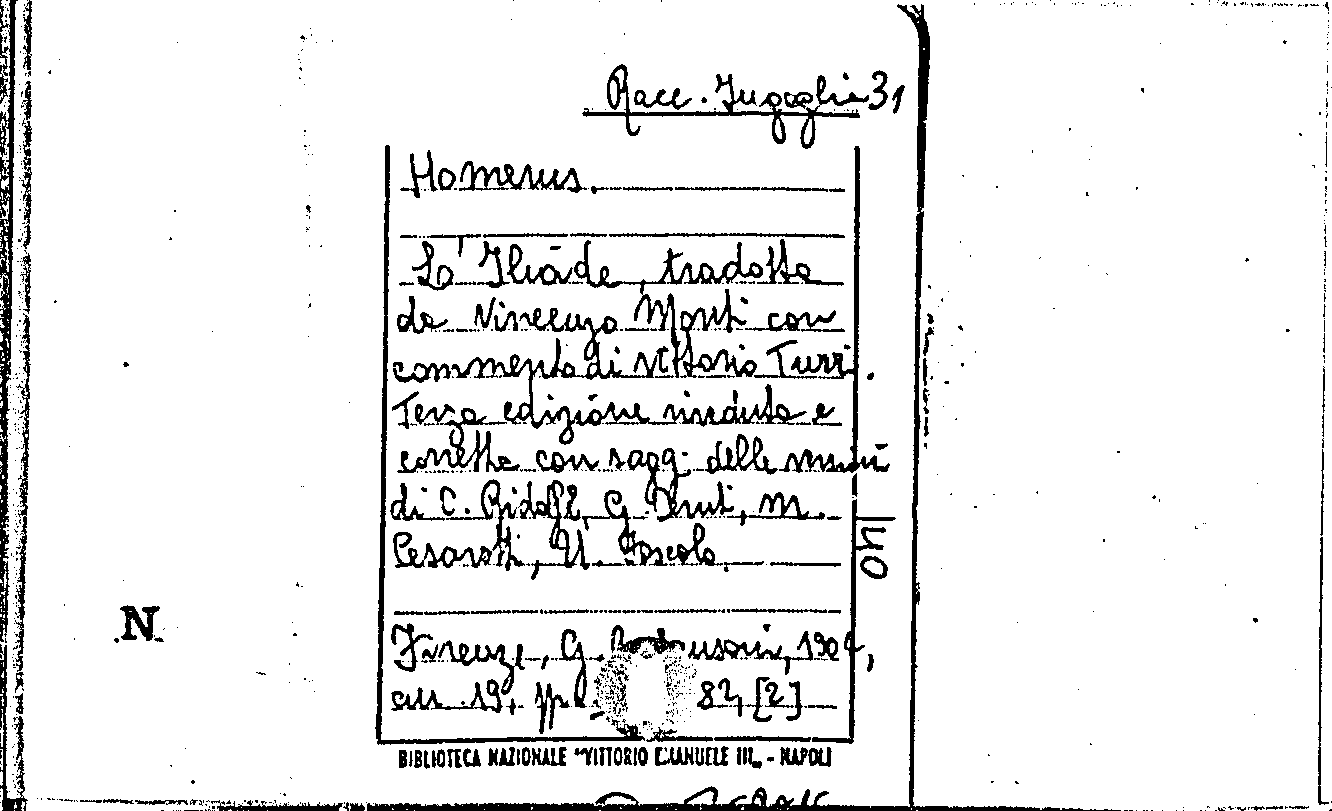 Race. Jugoglia 31
Homerus.
L'Iliade, tradotta
da Vincenzo Monti con
commento di Vittorio Turri.
Terza edizione riveduta e
corretta con sagg. delle versioni
di C. Ridolfi, G. Ceruti, M.
Cesarotti, U. Foscolo.
40
N.
Firenze, G.
cm. 19, pp. 82, [2]
BIBLIOTECA NAZIONALE "VITTORIO EMANUELE III„ - NAPOLI